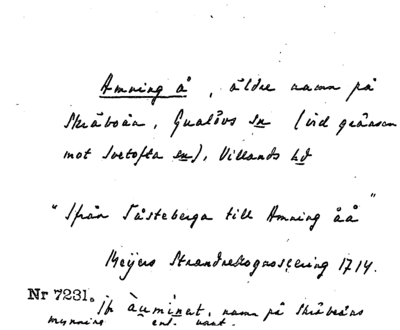 Amning å, äldre namn på
Skräboån, Gualövs sn (vid gränsen
mot Ivetofta sn), Villands hd
"Ifrån Tåsteberga till Amning åå"
Meijers Strandrekognoscering 1714.
Nr 7231. namn på Skräboåns
mynning enl. kart.